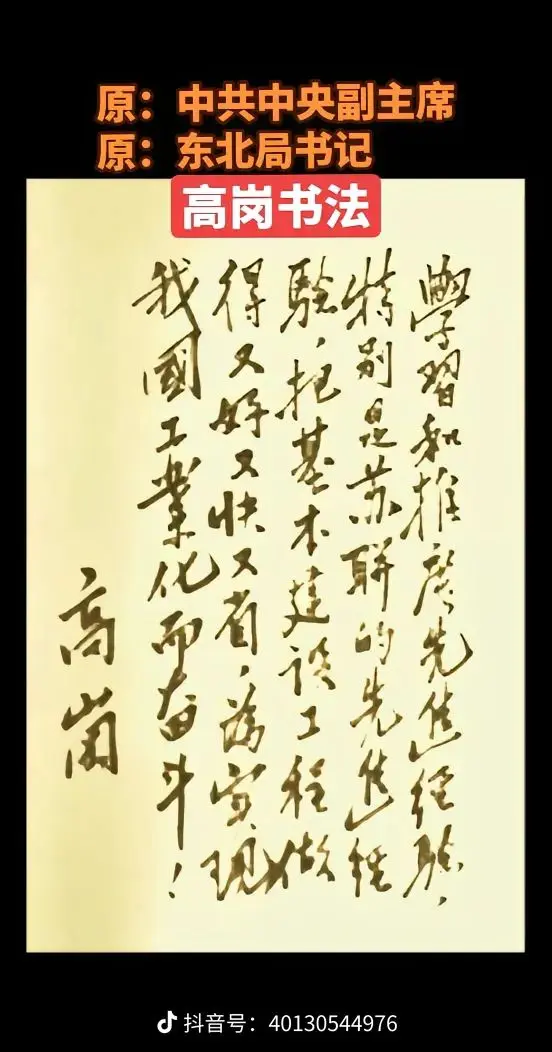 原：中共中央副主席
原：东北局书记
高岗书法
學習和推廣先進经驗，
特别是苏联的先進经
驗，把基本建设工程做
得又好又快又省，為实现
我國工業化而奋斗！
高崗
抖音号：40130544976